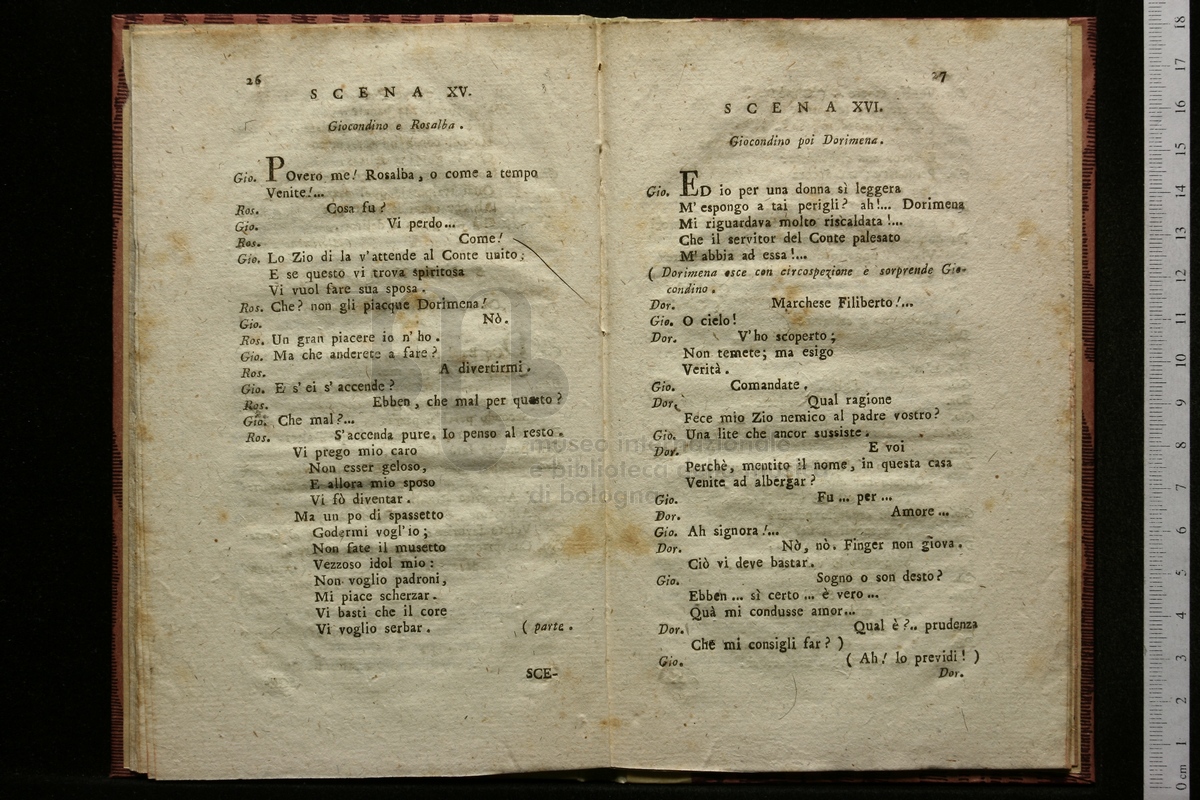 26
SCENA XV.
Giocondino e Rosalba.
Gio. POvero me! Rosalba, o come a tempo
Venite!...
Ros. Cosa fu?
Gio. Vi perdo...
Ros. Come!
Gio. Lo Zio di la v'attende al Conte unito;
E se questo vi trova spiritosa
Vi vuol fare sua sposa.
Ros. Che? non gli piacque Dorimena!
Gio. Nò.
Ros. Un gran piacere io n'ho.
Gio. Ma che anderete a fare?
Ros. A divertirmi.
Gio. E s'ei s'accende?
Ros. Ebben, che mal per questo?
Gio. Che mal?...
Ros. S'accenda pure. Io penso al resto.
Vi prego mio caro
Non esser geloso,
E allora mio sposo
Vi fò diventar.
Ma un po di spassetto
Godermi vogl'io;
Non fate il musetto
Vezzoso idol mio:
Non voglio padroni,
Mi piace scherzar.
Vi basti che il core
Vi voglio serbar. (parte.
SCE-
27
SCENA XVI.
Giocondino poi Dorimena.
Gio. ED io per una donna sì leggera
M'espongo a tai perigli? ah!... Dorimena
Mi riguardava molto riscaldata!...
Che il servitor del Conte palesato
M'abbia ad essa!...
(Dorimena esce con circospezione e sorprende Gio-
condino.
Dor. Marchese Filiberto!...
Gio. O cielo!
Dor. V'ho scoperto;
Non temete; ma esigo
Verità.
Gio. Comandate.
Dor. Qual ragione
Fece mio Zio nemico al padre vostro?
Gio. Una lite che ancor sussiste.
Dor. E voi
Perchè, mentito il nome, in questa casa
Venite ad albergar?
Gio. Fu... per...
Dor. Amore...
Gio. Ah signora!...
Dor. Nò, nò. Finger non giova.
Ciò vi deve bastar.
Gio. Sogno o son desto?
Ebben... sì certo... è vero...
Quà mi condusse amor...
Dor. Qual è?.. prudenza
Che mi consigli far?)
Gio. (Ah! lo previdi!)
Dor.
museo internazionale
e biblioteca
di bologna
18
17
16
15
14
13
12
11
10
9
8
7
6
5
4
3
2
1
0 cm